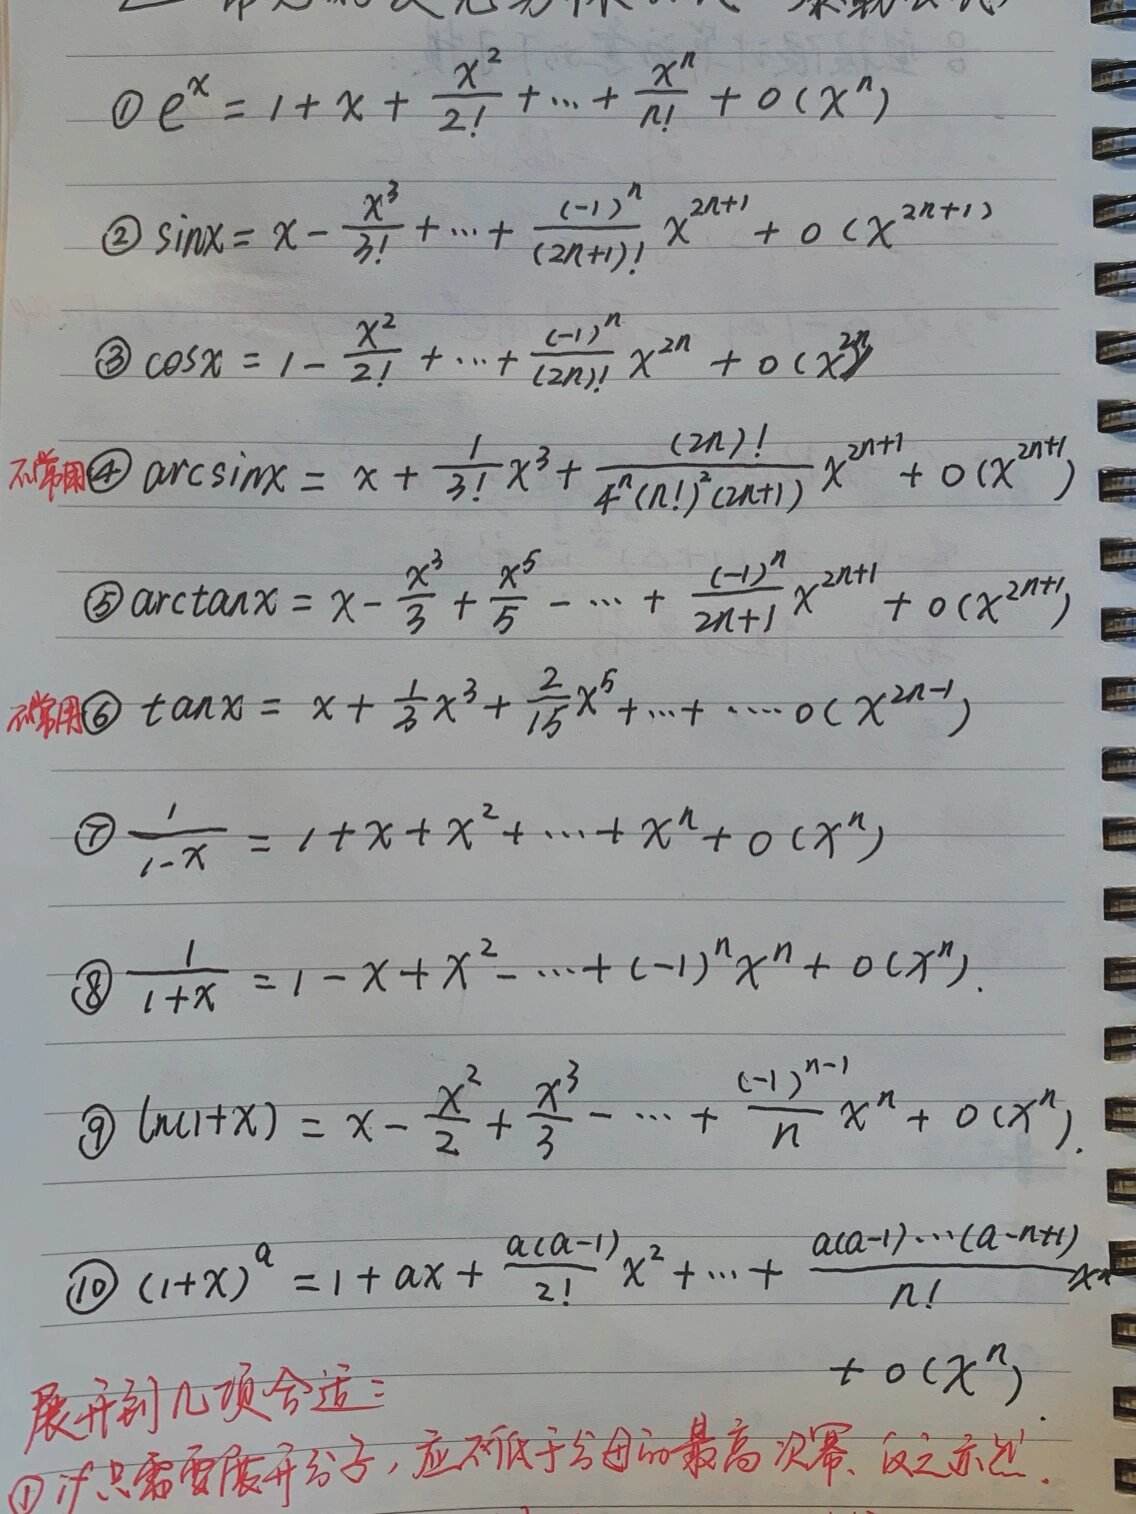 ① eˣ = 1 + x + x²/2! + … + xⁿ/n! + o(xⁿ)
② sinx = x - x³/3! + … + (-1)ⁿ/(2n+1)! x²ⁿ⁺¹ + o(x²ⁿ⁺¹)
③ cosx = 1 - x²/2! + … + (-1)ⁿ/(2n)! x²ⁿ + o(x²ⁿ)
不常用 ④ arcsinx = x + 1/3! x³ + (2n)!/(4ⁿ(n!)²(2n+1)) x²ⁿ⁺¹ + o(x²ⁿ⁺¹)
⑤ arctanx = x - x³/3 + x⁵/5 - … + (-1)ⁿ/(2n+1) x²ⁿ⁺¹ + o(x²ⁿ⁺¹)
不常用 ⑥ tanx = x + 1/3 x³ + 2/15 x⁵ + … + …… o(x²ⁿ⁻¹)
⑦ 1/(1-x) = 1 + x + x² + … + xⁿ + o(xⁿ)
⑧ 1/(1+x) = 1 - x + x² - … + (-1)ⁿxⁿ + o(xⁿ).
⑨ ln(1+x) = x - x²/2 + x³/3 - … + (-1)ⁿ⁻¹/n xⁿ + o(xⁿ).
⑩ (1+x)ᵃ = 1 + ax + a(a-1)/2! x² + … + a(a-1)…(a-n+1)/n! xⁿ
+ o(xⁿ).
展开到几项合适:
① if 只需要展开分子,应不低于分母的最高次幂、反之亦然.